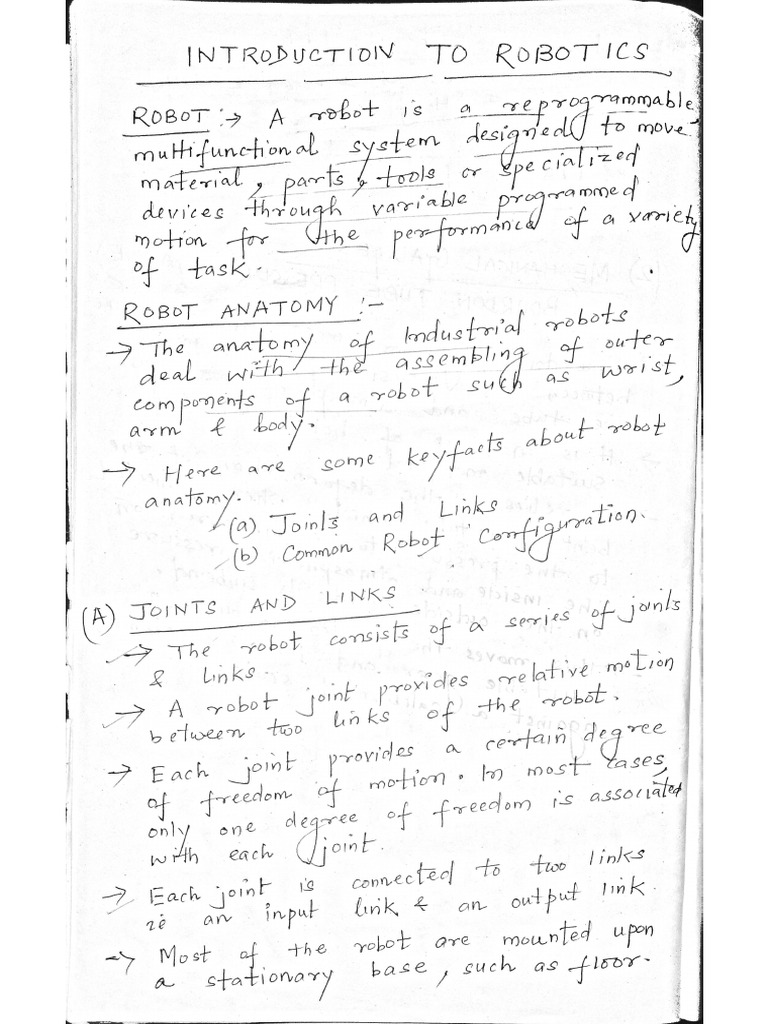 INTRODUCTION TO ROBOTICS
ROBOT :→ A robot is a reprogrammable,
multifunctional system designed to move
material, parts, tools or specialized
devices through variable programmed
motion for the performance of a variety
of task.
ROBOT ANATOMY :-
→ The anatomy of Industrial robots
deal with the assembling of outer
components of a robot such as wrist,
arm & body.
→ Here are some keyfacts about robot
anatomy.
(a) Joints and Links
(b) Common Robot Configuration.
(A) JOINTS AND LINKS
→ The robot consists of a series of joints
& links.
→ A robot joint provides relative motion
between two links of the robot.
→ Each joint provides a certain degree
of freedom of motion. In most cases,
only one degree of freedom is associated
with each joint.
→ Each joint is connected to two links
ie an input link & an output link.
→ Most of the robot are mounted upon
a stationary base, such as floor.